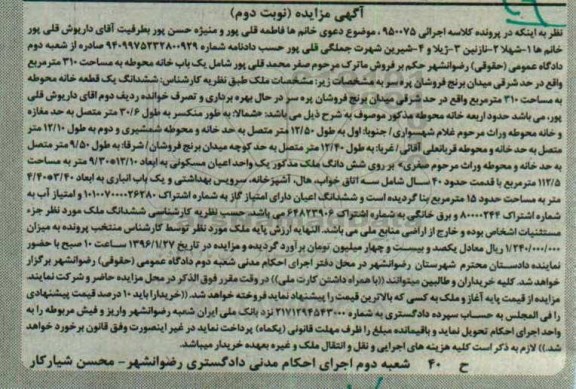 آگهی مزایده (نوبت دوم)
نظر به اینکه در پرونده کلاسه اجرائی ۹۵۰۰۷۵ ، موضوع دعوی خانم ها فاطمه قلی پور و منیژه حسن پور بطرفیت آقای داریوش قلی پور
خانم ها ۱-شهلا ۲-نازنین ۳-ژیلا و ۴-شیرین شهرت جملگی قلی پور حسب دادنامه شماره ۹۴۰۹۹۷۵۲۳۲۸۰۰۹۲۹ صادره از شعبه دوم
دادگاه عمومی (حقوقی) رضوانشهر حکم بر فروش ماترک مرحوم صفر محمد قلی پور شامل یک باب خانه محوطه به مساحت ۳۱۰ مترمربع
واقع در حد شرقی میدان برنج فروشان پره سر به مشخصات زیر: مشخصات ملک طبق نظریه کارشناس: ششدانگ یک قطعه خانه محوطه
به مساحت ۳۱۰ مترمربع واقع در حد شرقی میدان برنج فروشان پره سر در حال بهره برداری و تصرف خوانده ردیف دوم آقای داریوش قلی
پور، می باشد حدود اربعه خانه محوطه مذکور موصوف به شرح ذیل می باشد: شمالا: به طور منکسر به طول ۳۰/۶ متر متصل به حد مغازه
و خانه محوطه وراث مرحوم غلام شهسواری/ جنوبا: اول به طول ۱۲/۵۰ متر متصل به حد خانه و محوطه شمشیری و دوم به طول ۱۲/۱۰ متر
متصل به حد خانه و محوطه قربانعلی آقائی/ غربا: به طول ۱۲/۴۰ متر متصل به حد کوچه میدان برنج فروشان/ شرقا: به طول ۹/۵۰ متر متصل
به حد خانه و محوطه وراث مرحوم صفری» بر روی شش دانگ ملک مذکور یک واحد اعیان مسکونی به ابعاد ۱۲/۱۰*۹/۳۰ متر به مساحت
۱۱۲/۵ مترمربع با قدمت حدود ۴۰ سال شامل سه اتاق خواب، هال، آشپزخانه، سرویس بهداشتی و یک باب انباری به ابعاد ۳/۴۰*۴/۴۰
متر به مساحت حدود ۱۵ مترمربع بنا گردیده است و ششدانگ اعیان دارای امتیاز گاز به شماره اشتراک ۱۰۱۰۷۰۰۰۰۲۶۲۸۰ و امتیاز آب به
شماره اشتراک ۸۰۰۰۰۲۴۴ و برق خانگی به شماره اشتراک ۶۴۸۲۳۹۰۶ می باشد. حسب نظریه کارشناسی ششدانگ ملک مورد نظر جزء
مستثنیات اشخاص بوده و خارج از اراضی منابع ملی می باشد. النهایه ارزش پایه ملک مورد نظر توسط کارشناس منتخب پرونده به میزان
۱/۲۴۰/۰۰۰/۰۰۰ ریال معادل یکصد و بیست و چهار میلیون تومان برآورد گردیده و مزایده در تاریخ ۱۳۹۶/۱/۲۷ ساعت ۱۰ صبح با حضور
نماینده دادستان محترم شهرستان رضوانشهر در محل دفتر اجرای احکام مدنی شعبه دوم دادگاه عمومی (حقوقی) رضوانشهر برگزار
خواهد شد. کلیه خریداران و طالبین میتوانند ((با همراه داشتن کارت ملی)) در وقت مقرر فوق الذکر در محل مزایده حاضر و شرکت نمایند.
مزایده از قیمت پایه آغاز و ملک به کسی که بالاترین قیمت را پیشنهاد نماید فروخته خواهد شد. ((خریدار) باید ۱۰ درصد قیمت پیشنهادی
را فی المجلس به حساب سپرده دادگستری به شماره ۲۱۷۱۲۹۴۵۴۳۰۰۰ نزد بانک ملی ایران شعبه رضوانشهر واریز و فیش مربوطه را به
واحد اجرای احکام تحویل نماید و باقیمانده مبلغ را ظرف مهلت قانونی (یکماه) پرداخت نماید در غیر اینصورت وفق قانون برخورد خواهد
شد.)) لازم به ذکر است کلیه هزینه های اجرایی و نقل و انتقال ملک و غیره بعهده خریدار میباشد.
ح ۴۰ شعبه دوم اجرای احکام مدنی دادگستری رضوانشهر - محسن شیارکار